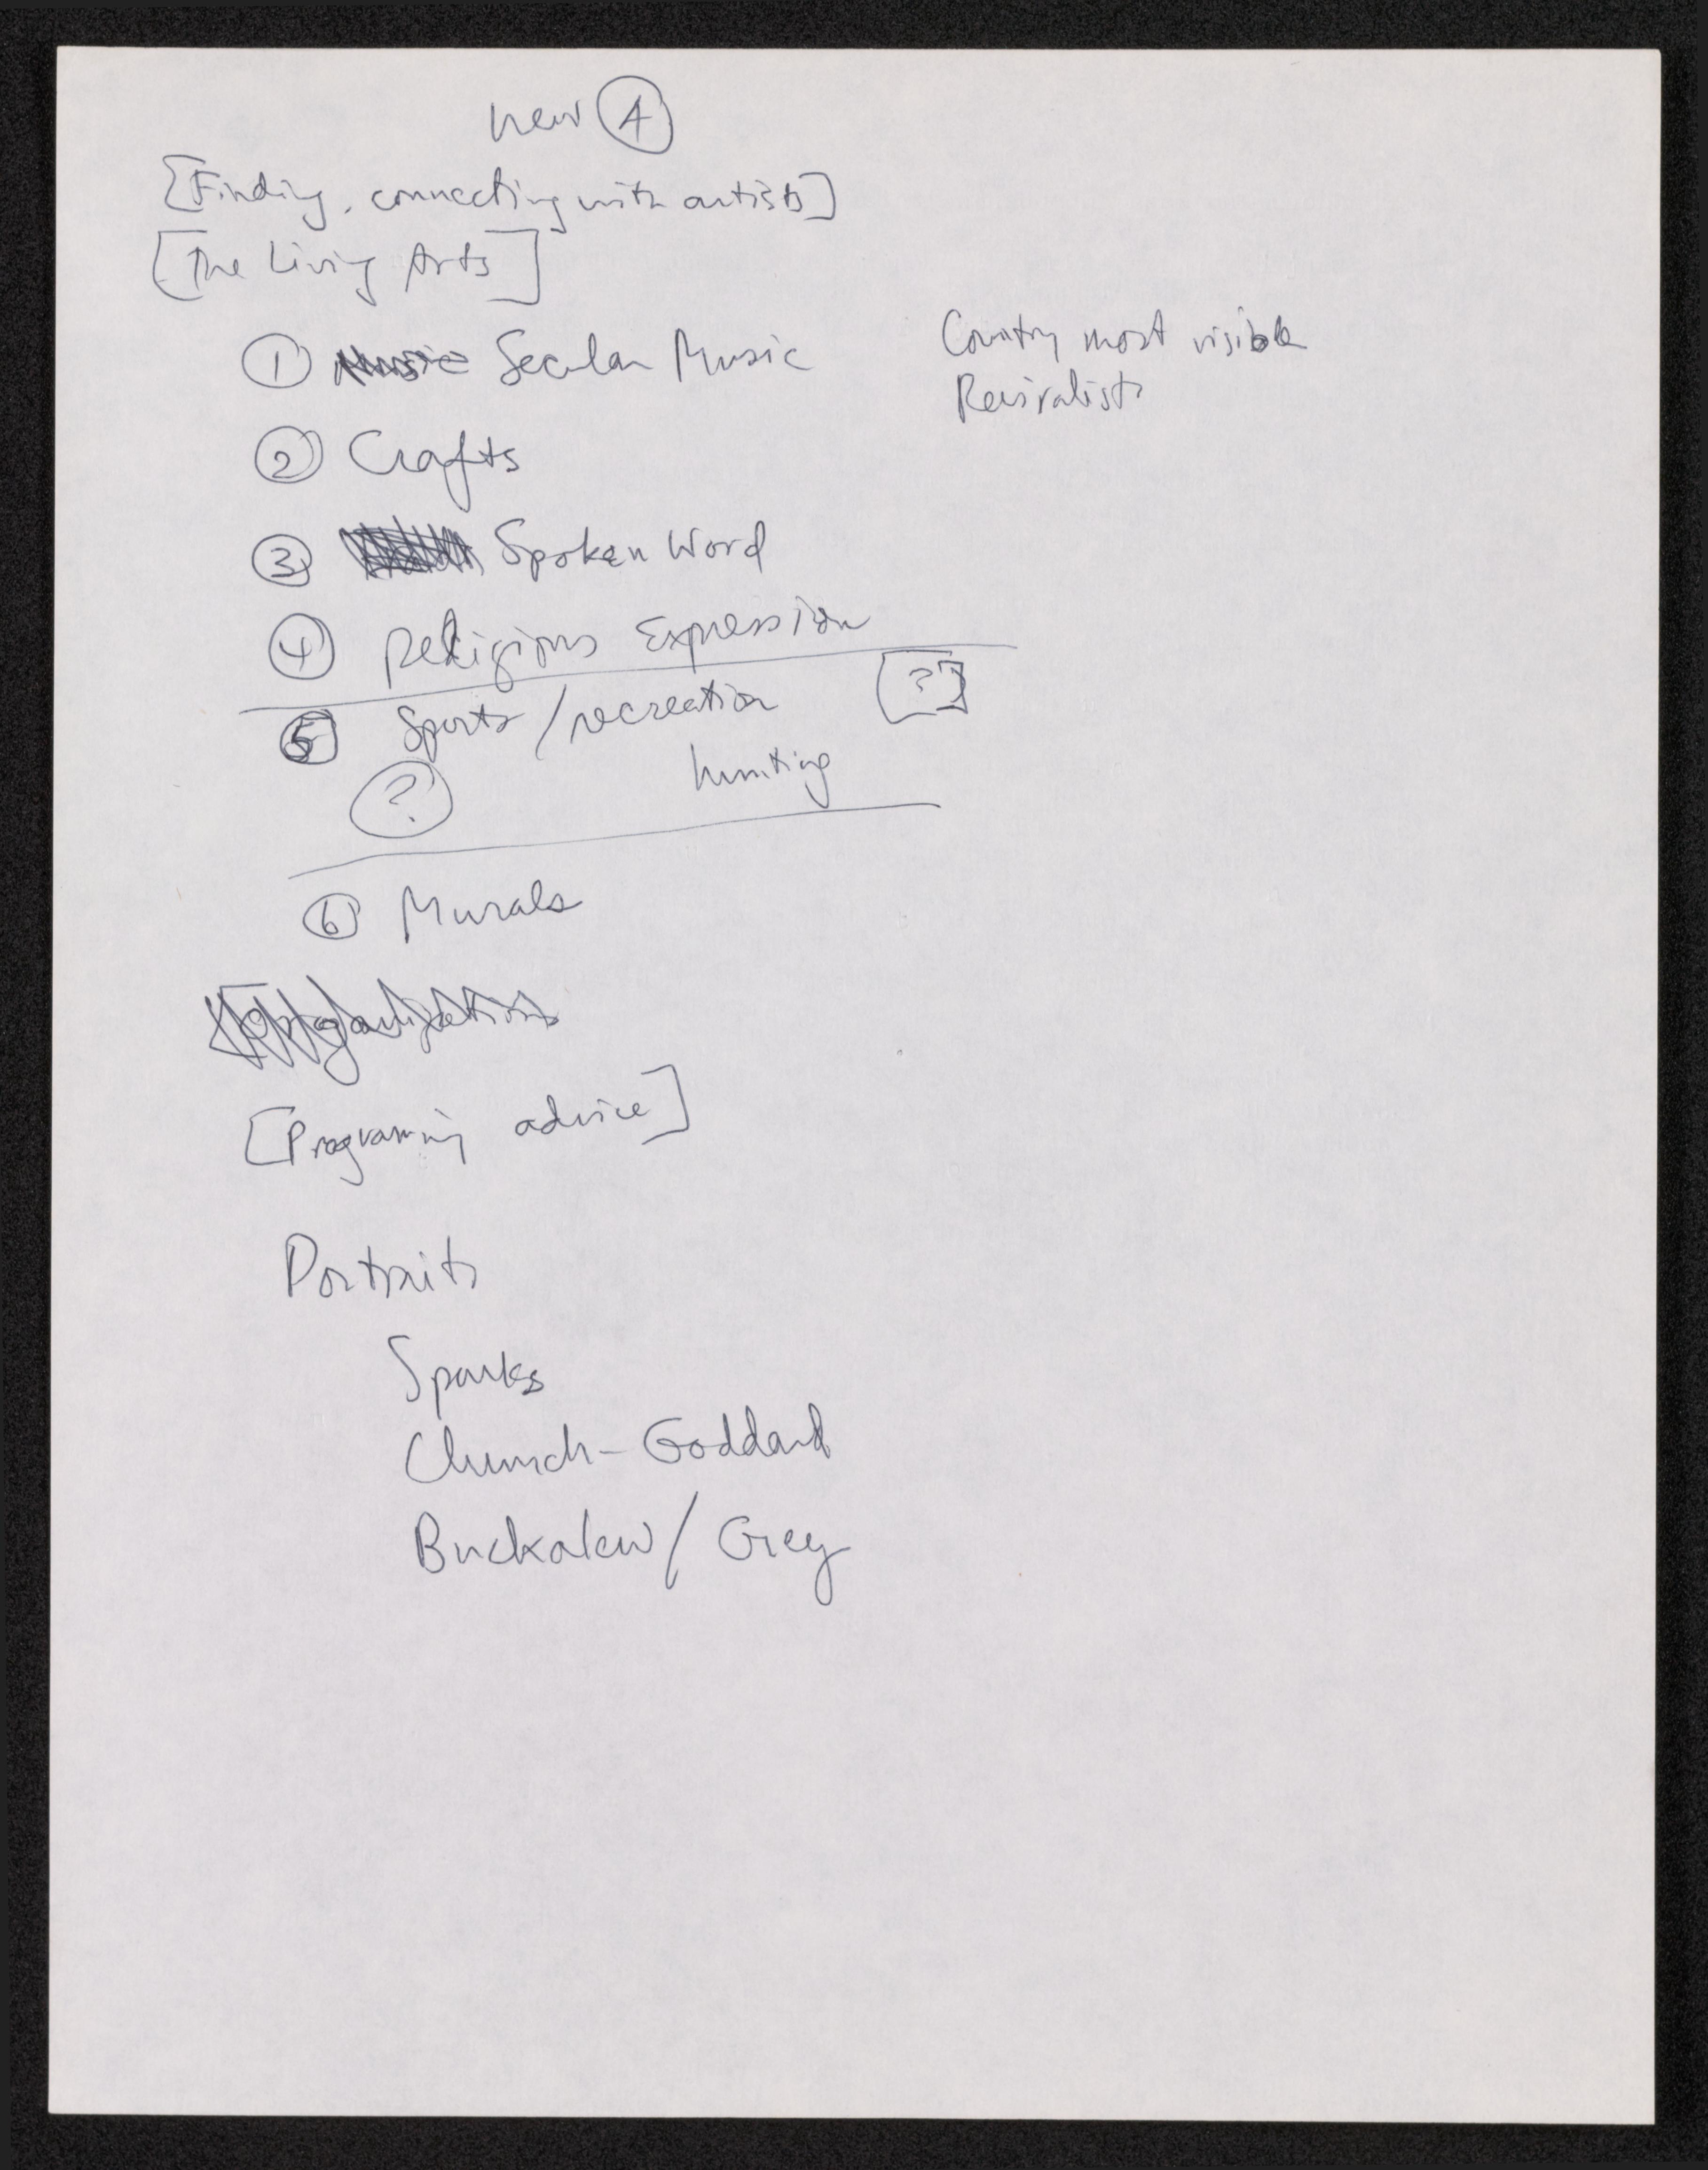 new A
[Finding, connecting with artists]
[The Living Arts]
1 Music Secular Music
Country most visible
Revivalists
2 Crafts
3 Spoken Word
4 Religious Expression
5 Sports/recreation [?]
hunting
?
6 Murals
[Programing advice]
Portraits
Sparks
Church-Goddard
Buckalew/Grey